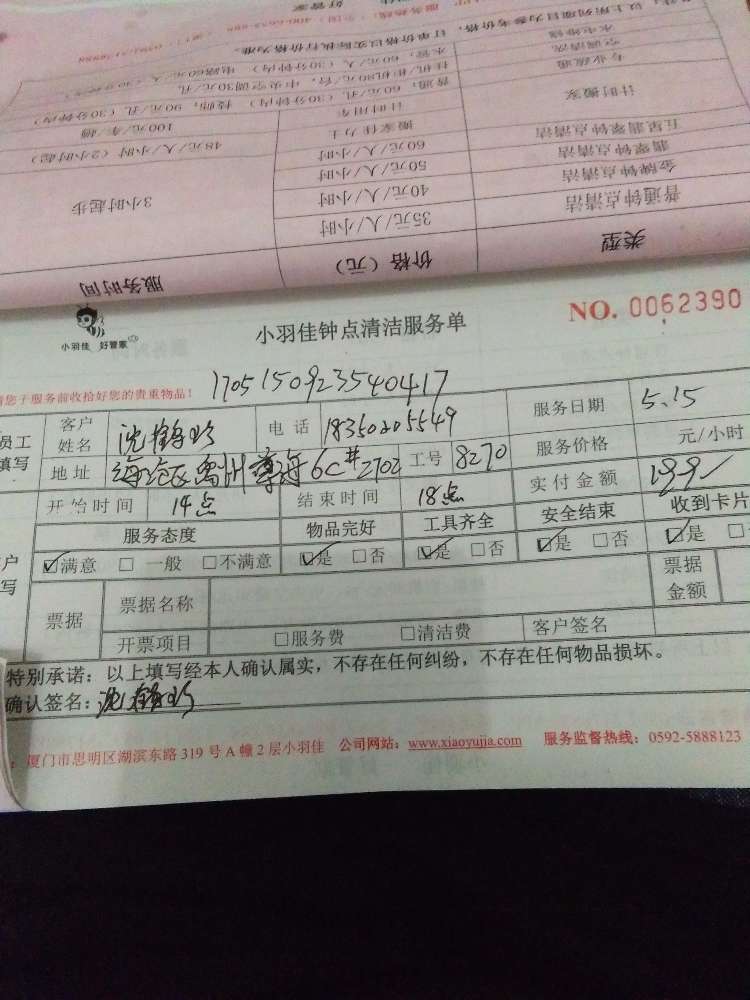 类型 价格（元） 服务时间
普通钟点清洁 35元/人/小时 3小时起步
金牌钟点清洁 40元/人/小时
翡翠钟点清洁 50元/人/小时
五星翡翠钟点清洁 60元/人/小时
计时搬家 搬家佳力士 48元/人/小时（2小时起）
计时用车 100元/车/趟
专业疏通 普通：60元/孔（30分钟内） 技师：90元/孔（30分钟内）
空调清洗
水电维修
小羽佳 好管家
小羽佳钟点清洁服务单
NO. 0062390
请您于服务前收拾好您的贵重物品！
17051509235540417
员工 填写
客户姓名 电话 18350205549 服务日期 5.15
地址 海沧区禹州尊海6C#2702 工号 8270 服务价格 元/小时
开始时间 14点 结束时间 18点 实付金额 199
服务态度 物品完好 工具齐全 安全结束 收到卡片
☑满意 □ 一般 □不满意 ☑是 □否 ☑是 □否 ☑是 □否 ☑是
票据 票据名称 票据金额
开票项目 □服务费 □清洁费 客户签名
特别承诺：以上填写经本人确认属实，不存在任何纠纷，不存在任何物品损坏。
确认签名：
：厦门市思明区湖滨东路 319 号 A 幢 2 层小羽佳 公司网站：www.xiaoyujia.com 服务监督热线：0592-5888123